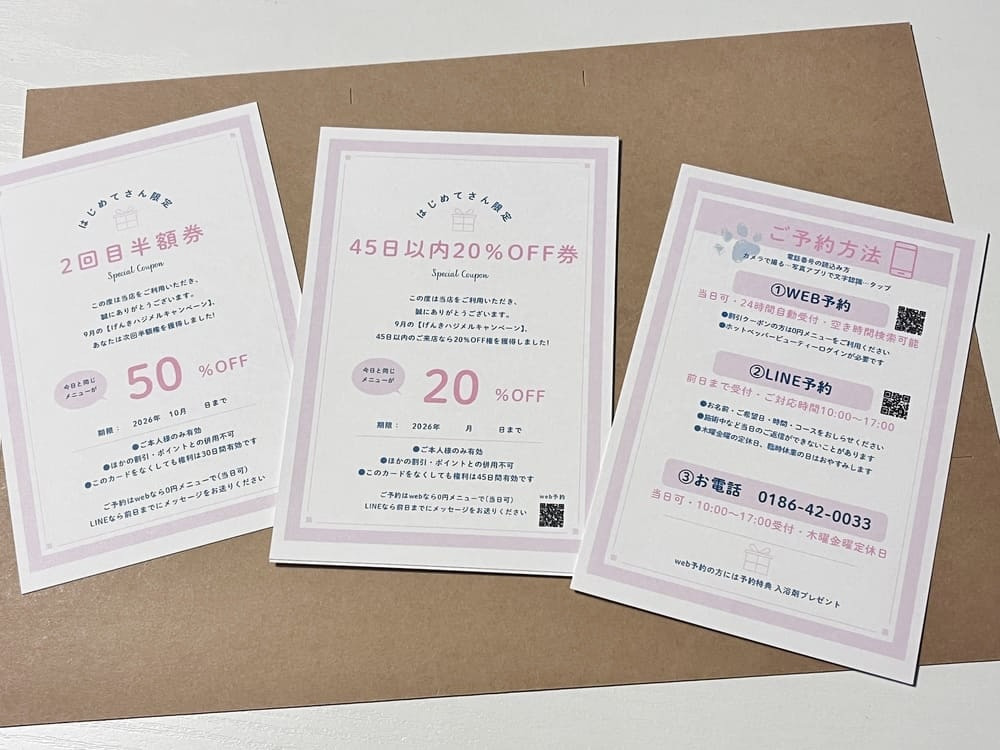 はじめてさん限定
2回目半額券
Special Coupon
この度は当店をご利用いただき、
誠にありがとうございます。
9月の【げんきハジメルキャンペーン】、
あなたは次回半額権を獲得しました!
今日と同じ
メニューが
50 %OFF
期限： 2026年 10月 日まで
●ご本人様のみ有効
●ほかの割引・ポイントとの併用不可
●このカードをなくしても権利は30日間有効です
ご予約はwebなら0円メニューで(当日可)
LINEなら前日までにメッセージをお送りください
はじめてさん限定
45日以内20%OFF券
Special Coupon
この度は当店をご利用いただき、
誠にありがとうございます。
9月の【げんきハジメルキャンペーン】、
45日以内のご来店なら20%OFF権を獲得しました!
今日と同じ
メニューが
20 %OFF
期限： 2026年 月 日まで
●ご本人様のみ有効
●ほかの割引・ポイントとの併用不可
●このカードをなくしても権利は45日間有効です
ご予約はwebなら0円メニューで(当日可)
LINEなら前日までにメッセージをお送りください
web予約
ご予約方法
電話番号の読込み方
カメラで撮る…写真アプリで文字認識…タップ
①WEB予約
当日可・24時間自動受付・空き時間検索可能
●割引クーポンの方は0円メニューをご利用ください
●ホットペッパービューティーログインが必要です
②LINE予約
前日まで受付・ご対応時間10:00〜17:00
●お名前・ご希望日・時間・コースをおしらせください
●施術中など当日のご返信ができないことがあります
●木曜金曜の定休日、臨時休業の日はおやすみします
③お電話 0186-42-0033
当日可・10:00〜17:00受付・木曜金曜定休日
web予約の方には予約特典 入浴剤プレゼント